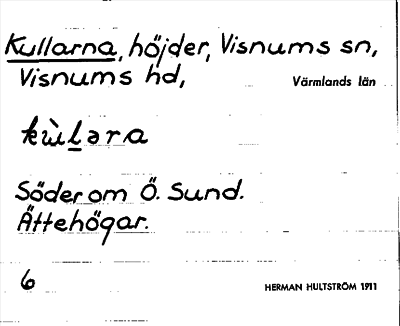 Kullarna, höjder, Visnums sn,
Visnums hd,
Värmlands län
kùlera
Söder om Ö. Sund.
Ättehögar.
6
HERMAN HULTSTRÖM 1911